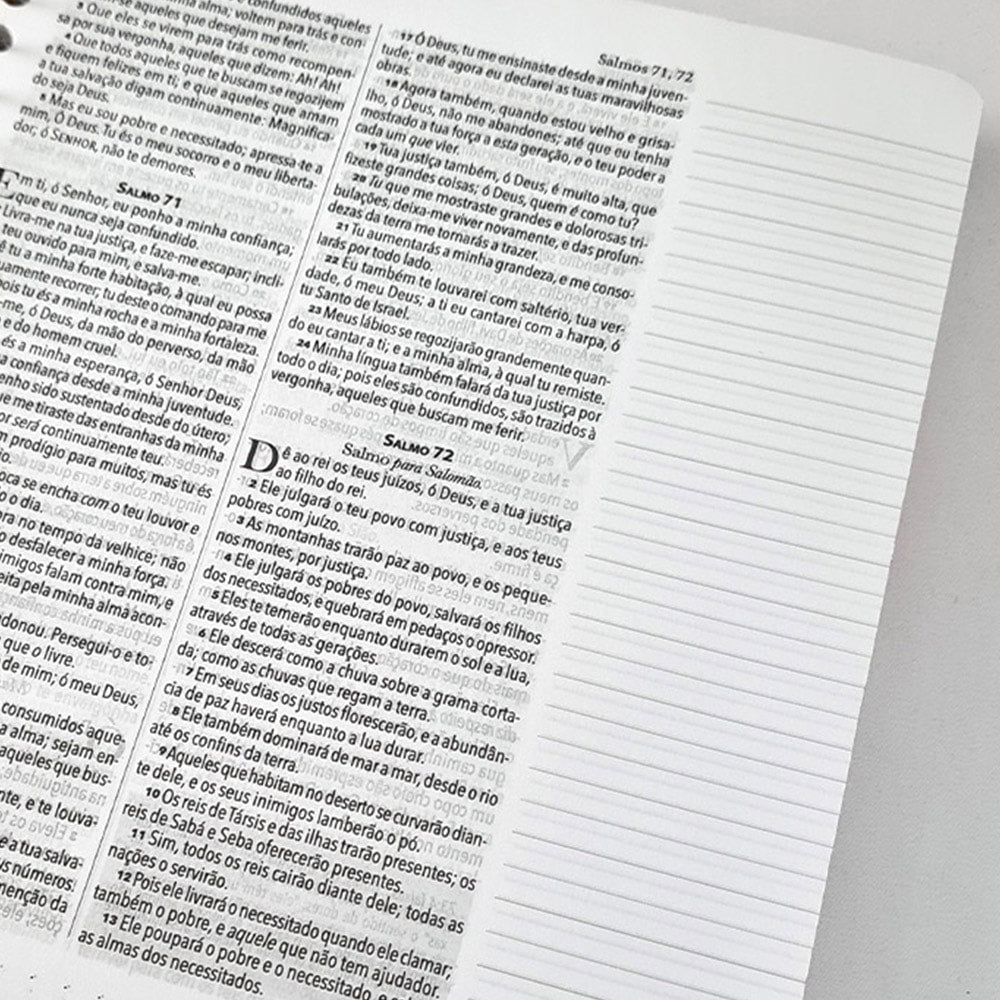 Salmos 71, 72
confundidos aqueles
alma; voltem para trás e con-
aqueles que desejam me ferir.
3 Que eles se virem para trás como recompen-
sa por sua vergonha, aqueles que dizem: Ah! Ah!
4 Que todos aqueles que te buscam se regozijem
e fiquem felizes em ti; e que aqueles que amam
a tua salvação digam continuamente: Magnifica-
do seja Deus.
5 Mas eu sou pobre e necessitado; apressa-te a
mim, Ó Deus. Tu és o meu socorro e o meu liberta-
dor; ó SENHOR, não te demores.
SALMO 71
Em ti, ó Senhor, eu ponho a minha confiança;
que eu nunca seja confundido.
Livra-me na tua justiça, e faze-me escapar; incli-
teu ouvido para mim, e salva-me.
ê tu a minha forte habitação, à qual eu possa
uamente recorrer; tu deste o comando para me
pois tu és a minha rocha e a minha fortaleza.
-me, ó Deus, da mão do perverso, da mão
e do homem cruel.
és a minha esperança, ó Senhor Deus;
a confiança desde a minha juventude.
enho sido sustentado desde do útero;
ue me tiraste das entranhas da minha
or será continuamente teu.
m prodígio para muitos, mas tu és
io.
oca se encha com o teu louvor e
o o dia.
ora no tempo da velhice; não
o desfalecer a minha força.
imigos falam contra mim, e
eita pela minha alma acon-
donou. Persegui-o e to-
que o livre.
de mim; ó meu Deus,
consumidos aque-
a alma; sejam en-
aqueles que bus-
nte, e te louva-
e a tua salva-
us números.
menção da
17 Ó Deus, tu me ensinaste desde a minha juven-
tude; e até agora eu declarei as tuas maravilhosas
obras.
18 Agora também, quando estou velho e grisa-
lho, ó Deus, não me abandones; até que eu tenha
mostrado a tua força a esta geração, e o teu poder a
cada um que vier.
19 Tua justiça também, ó Deus, é muito alta, que
fizeste grandes coisas; ó Deus, quem é como tu?
20 Tu que me mostraste grandes e dolorosas tri-
bulações, deixa-me viver novamente, e das profun-
dezas da terra me tornarás a trazer.
21 Tu aumentarás a minha grandeza, e me conso-
larás por todo lado.
22 Eu também te louvarei com saltério, tua ver-
dade, ó meu Deus; a ti eu cantarei com a harpa, ó
tu Santo de Israel.
23 Meus lábios se regozijarão grandemente quan-
do eu cantar a ti; e a minha alma, à qual tu remiste.
24 Minha língua também falará da tua justiça por
todo o dia; pois eles são confundidos, são trazidos à
vergonha, aqueles que buscam me ferir.
SALMO 72
Salmo para Salomão.
Dê ao rei os teus juízos, ó Deus, e a tua justiça
ao filho do rei.
2 Ele julgará o teu povo com justiça, e aos teus
pobres com juízo.
3 As montanhas trarão paz ao povo, e os peque-
nos montes, por justiça.
4 Ele julgará os pobres do povo, salvará os filhos
dos necessitados, e quebrará em pedaços o opressor.
5 Eles te temerão enquanto durarem o sol e a lua,
através de todas as gerações.
6 Ele descerá como a chuva sobre a grama corta-
da; como as chuvas que regam a terra.
7 Em seus dias os justos florescerão, e a abundân-
cia de paz haverá enquanto a lua durar.
8 Ele também dominará de mar a mar, desde o rio
até os confins da terra.
9 Aqueles que habitam no deserto se curvarão dian-
te dele, e os seus inimigos lamberão o pó.
10 Os reis de Társis e das ilhas trarão presentes; os
reis de Sabá e Seba oferecerão presentes.
11 Sim, todos os reis cairão diante dele; todas as
nações o servirão.
12 Pois ele livrará o necessitado quando ele clamar;
também o pobre, e aquele que não tem ajudador.
13 Ele poupará o pobre e o necessitado, e salvará
as almas dos necessitados.